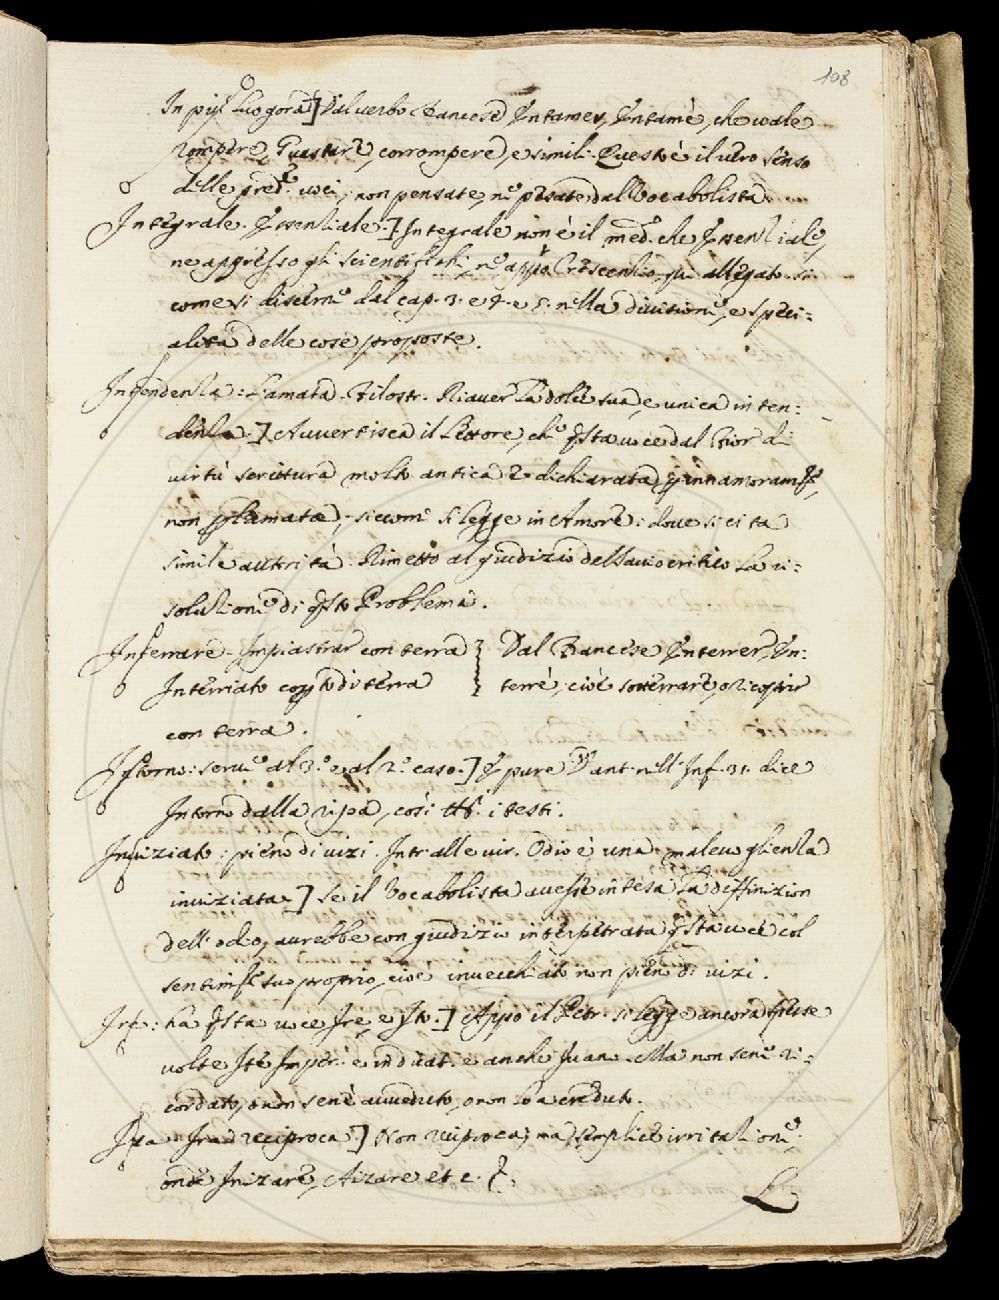 108
In più luogora] Dal verbo Francese Entamer, Entamè, che vale
rompere, Guastare, corrompere, e simili. Questo è il vero senso
delle pred.e voci, non pensate, nè pesate dal Vocabolista.
Integrale. Essenziale.] Integrale non è il med.o che Essenziale,
ne appresso gli scientifichi, nè appo Crescenzio qui allegato. si
come si discerne dal cap. 3. e 4. e 5. nella divisione, e speci=
alità delle cose proposte.
Intendenza: L'amata. Filostr. Riaver la dolce sua, e unica inten=
denza.] Avvertisca il Lettore, che q.sta voce dal Fior di
virtù scrittura molto antica è dichiarata p innamoram.to,
non p l'amata, siccome si legge in Amore: dove si cita
simile autorità. Rimetto al giudizio del savio critico la ri=
soluzione di q.sto Problema.
Interrare. Impiastrar con terra } Dal Francese Enterrer, En=
Interriato coperto di terra } terrè, cioè sotterrare, o ricoprir
con terra.
Intorno: serve al 3.o e al 2.o caso.] E pure Dant. nell' Inf. 31. dice
Intorno dalla ripa, così tt.i i testi.
Inviziato: pieno di vizi. Intr. alle vir. Odio è una malevoglienza
inviziata.] Se il Vocabolista avesse intesa la diffinizion
dell' odio, avrebbe con giudizio interpetrata q.sta voce col
sentim.to suo proprio, cioè invecchiato non pieno di vizi.
Ire: ha q.sta voce Ire, e Ito.] Appo il Petr. si legge ancora spesse
volte Ite Imper. e indicat. e anche Ivano. Ma non sen'è ri=
cordato, o non sen'è avveduto, o non l'ha creduto.
Iza Ira reciproca.] Non reciproca, ma semplice irritazione.
onde Inizare, Aizare etc.
L